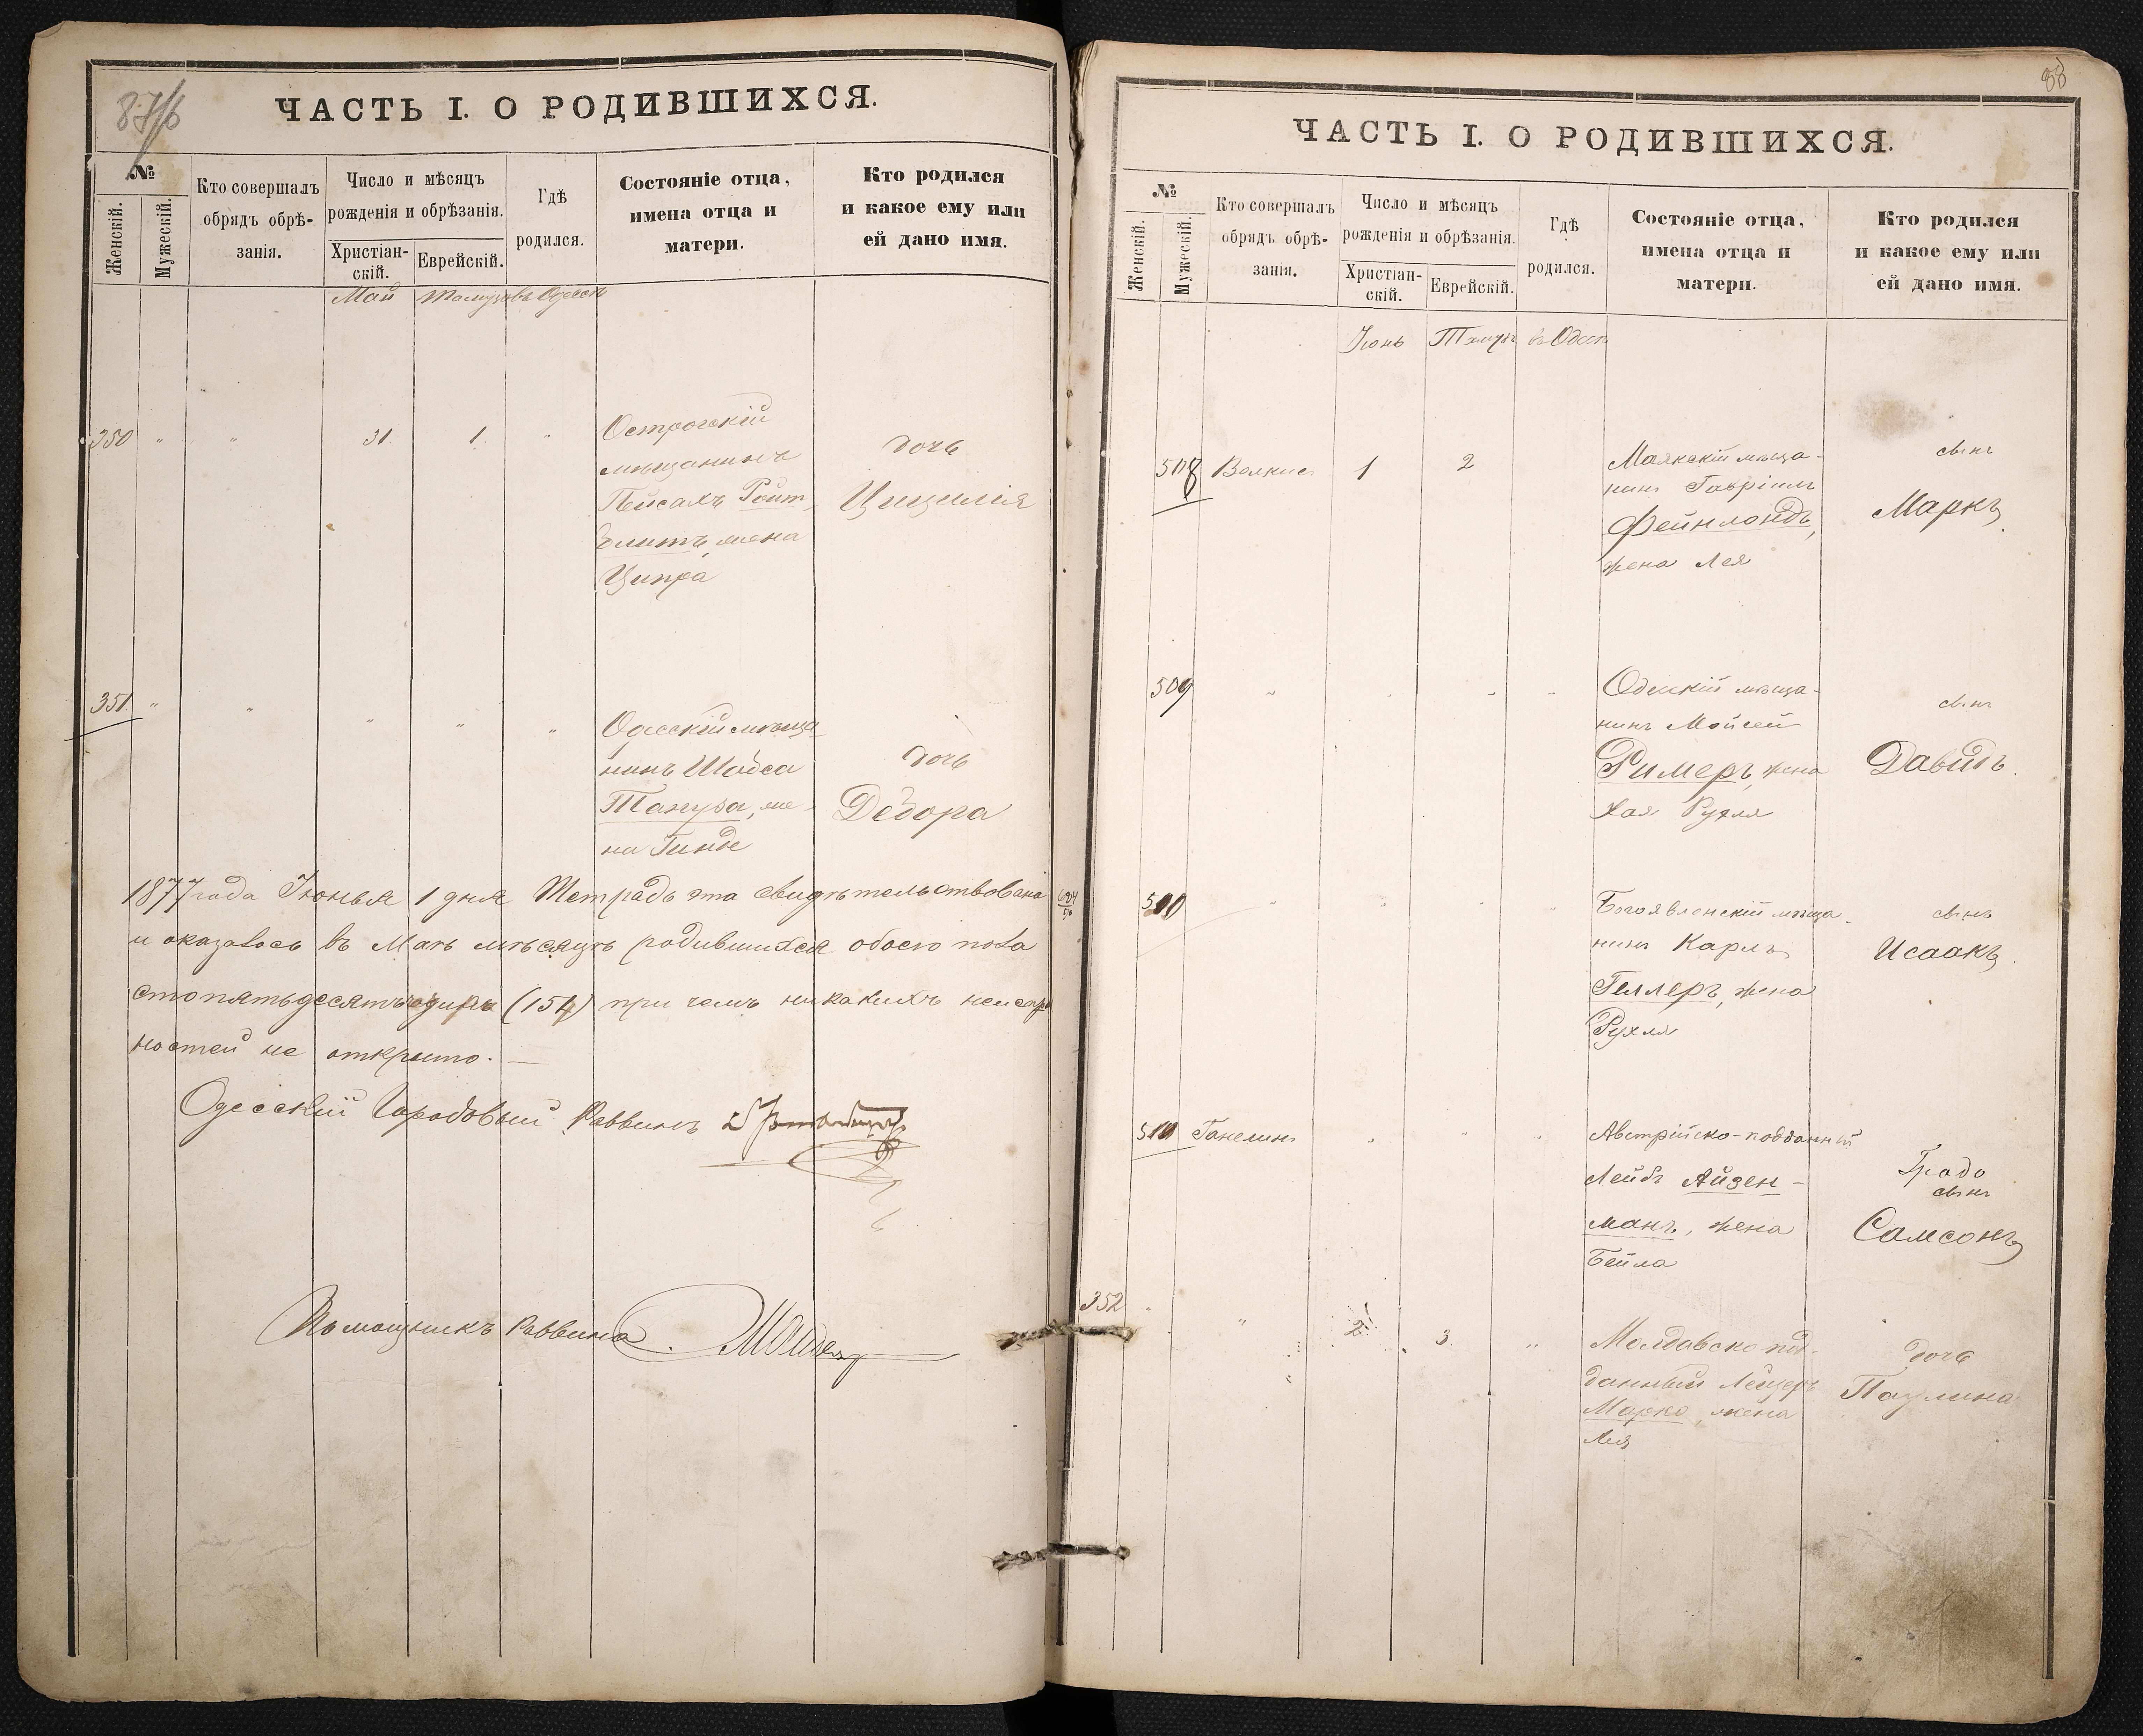 ЧАСТЬ I. О РОДИВШИХСЯ.
№
Женскій.
Мужескій.
Кто совершалъ
обрядъ обрѣ-
занія.
Число и мѣсяцъ
рожденія и обрѣзанія.
Христіан-
скій.
Еврейскій.
Гдѣ
родился.
Состояніе отца,
имена отца и
матери.
Кто родился
и какое ему или
ей дано имя.
Май Тамузъ въ Одессѣ
350 " " 31 1 "
Острогскій
мѣщанинъ
Пейсахъ Ройт
блитъ, жена
Ципра
дочь
Цицилія
351 " " " " "
Одесскій мѣща
нинъ Шайса
Танура, же-
на Гинде
дочь
Дебора
1877 года Іюнья 1 дня Тетрадь эта свидѣтельствована
и оказалось въ Маѣ мѣсяцѣ родившихся обоего пола
сто пятьдесятъ (154) при чемъ никакихъ неиспр
ностей не открыто.
Одесскій Городовый Раввинъ
Помощникъ Раввина
88
ЧАСТЬ I. О РОДИВШИХСЯ.
№
Женскій.
Мужескій.
Кто совершалъ
обрядъ обрѣ-
занія.
Число и мѣсяцъ
рожденія и обрѣзанія.
Христіан-
скій.
Еврейскій.
Гдѣ
родился.
Состояніе отца,
имена отца и
матери.
Кто родился
и какое ему или
ей дано имя.
Іюнь Тамузъ въ Одессѣ
508 Велкис. 1 2
Маякскій мѣща-
нинъ Гавріилъ
Фейнлондъ,
жена Лея
сынъ
Маркъ
509 " " " "
Одесскій мѣща-
нинъ Мойсей
Римеръ, жена
Хая Рухля
сынъ
Давидъ.
510 " " " "
Богоявленскій мѣща-
нинъ Карлъ
Геллеръ, жена
Рухля
сынъ
Исаакъ.
511 Ганелинъ " " "
Австрійско-подданный
Лейбъ Айзен-
манъ, жена
Бейла
сынъ
Самсонъ
352 " " 2 3 "
Молдавско под-
данный Лейзеръ
Марко, жена
Лея
дочь
Паулина